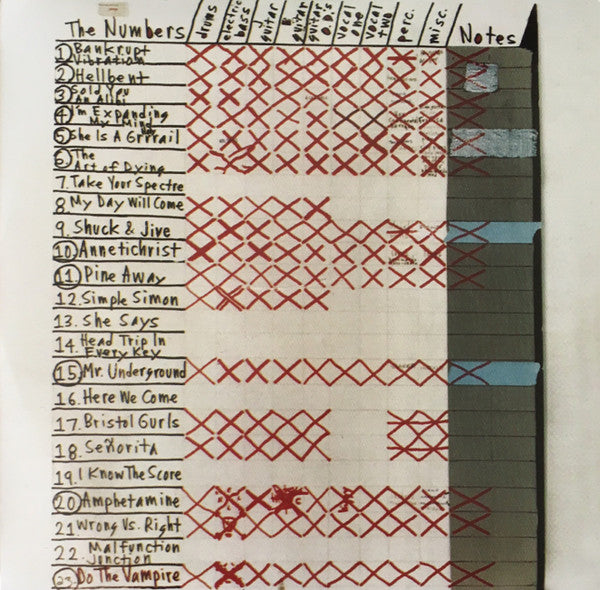 The Numbers drums electric bass guitar guitar guitar O.D.'s vocal one vocal two perc. misc. Notes
1 Bankrupt
Vibration
2 Hellbent
3 Sold You
An Alibi
4 I'm Expanding
My Mind
5 She Is A Grrrail
6 The
Art of Dying
7. Take Your Spectre
8. My Day Will Come
9. Shuck & Jive
10. Annetichrist
11 Pine Away
12. Simple Simon
13. She Says
14. Head Trip In
Every Key
15 Mr. Underground
16. Here We Come
17. Bristol Gurls
18. Señorita
19. I Know The Score
20 Amphetamine
21. Wrong Vs. Right
22. Malfunction
Junction
23 Do The Vampire